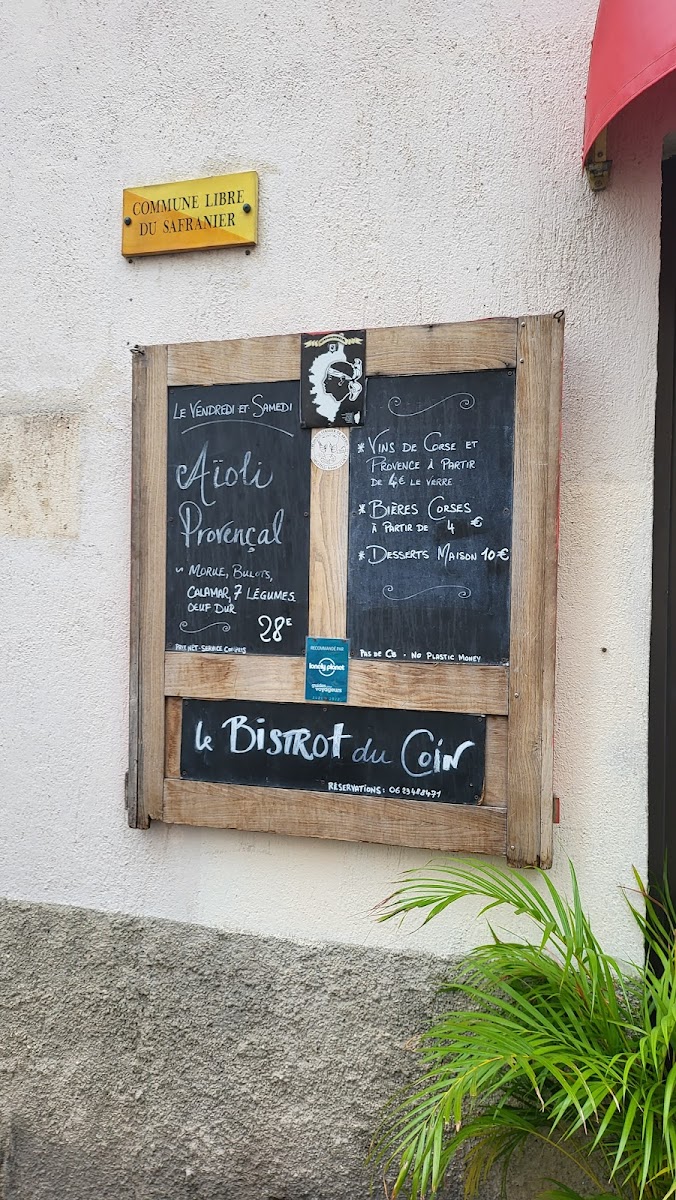 COMMUNE LIBRE
DU SAFRANIER
LE VENDREDI ET SAMEDI
Aïoli
Provençal
~ MORUE, BULOTS,
CALAMAR, 7 LÉGUMES
OEUF DUR
28€
PRIX NET - SERVICE COMPRIS
* VINS DE CORSE ET
PROVENCE À PARTIR
DE 4€ LE VERRE
* BIÈRES CORSES
À PARTIR DE 4 €
* DESSERTS MAISON 10€
PAS DE CB - NO PLASTIC MONEY
RECOMMANDÉ PAR
lonely planet
guides de
voyages
le BISTROT du COIN
RESERVATIONS: 0623488471